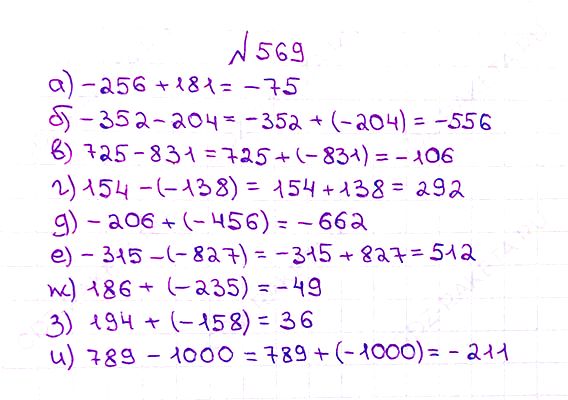 № 569
а) -256 + 181 = -75
б) -352 - 204 = -352 + (-204) = -556
в) 725 - 831 = 725 + (-831) = -106
г) 154 - (-138) = 154 + 138 = 292
д) -206 + (-456) = -662
е) -315 - (-827) = -315 + 827 = 512
ж) 186 + (-235) = -49
з) 194 + (-158) = 36
и) 789 - 1000 = 789 + (-1000) = -211